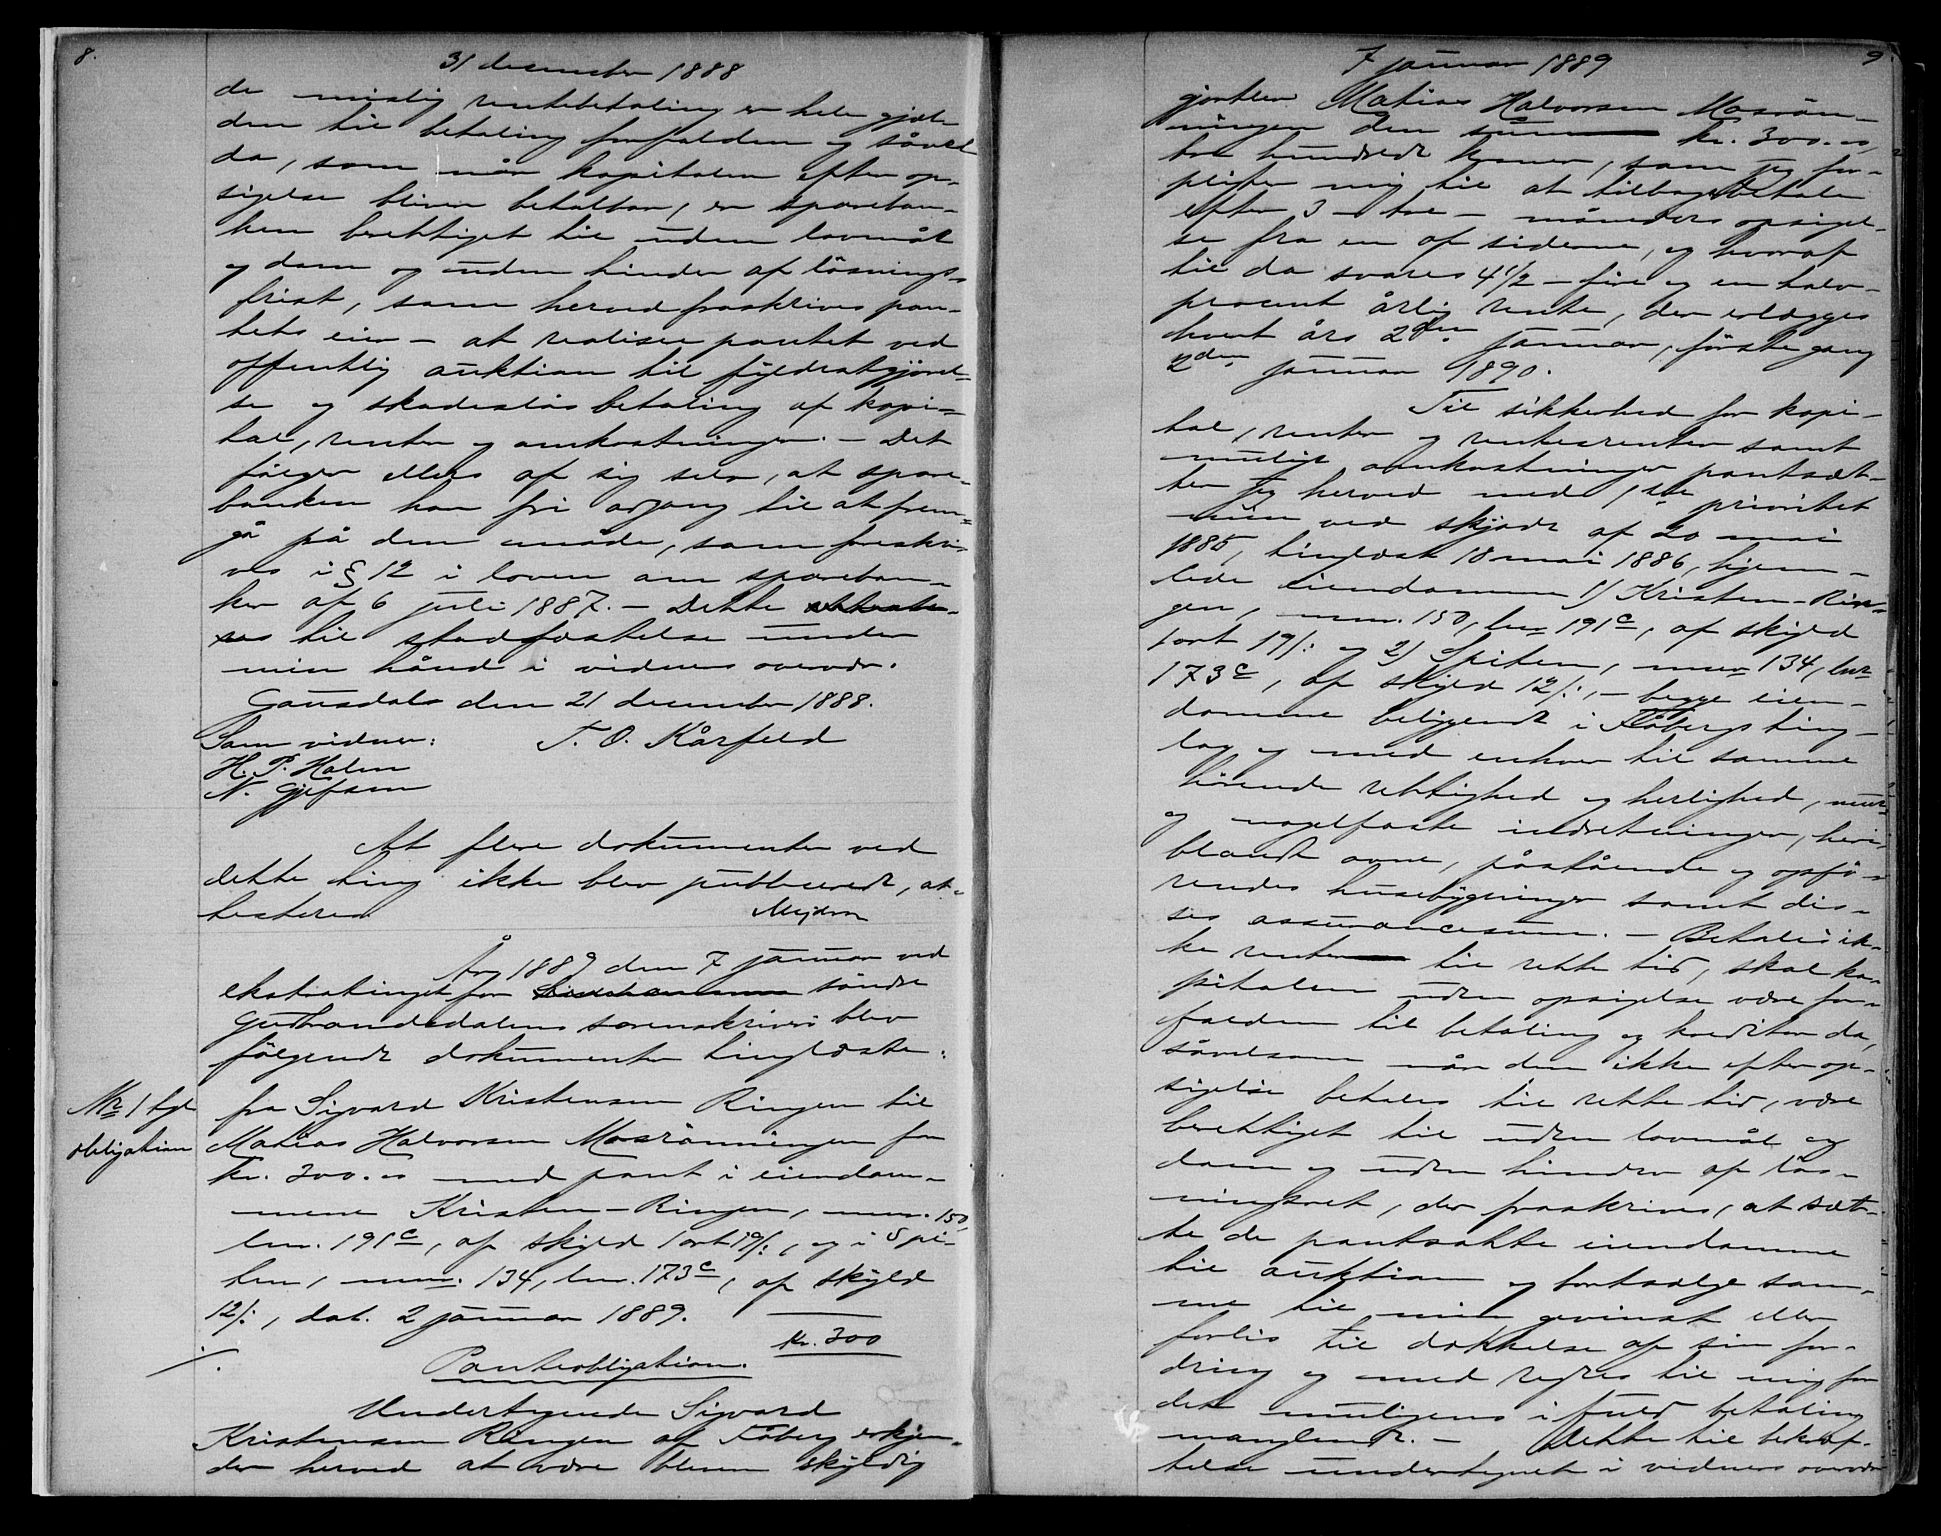 8.
31 december 1888
de mislig rentebetaling er hele gjæl-
den til betaling forfalden og såvel
da, som når kapitalen efter op-
sigelse bliver betalbar, er spareban-
ken berettiget til uden lovmål
og dom og uden hinder af løsnings-
frist, som herved fraskrives pan-
tets eier – at realisere pantet ved
offentlig auktion til fyldestgjørel-
se og skadesløs betaling af kapi-
tal, renter og omkostninger. – Det
følger ellers af sig selv, at spare-
banken har fri adgang til at frem-
gå på den måde, som foreskri-
ves i § 12 i loven om spareban-
ker af 6 juli 1887. – Dette
til stadfæstelse under
min hånd i vidners overvær.
Gausdal den 21 december 1888.
Som vidner: T. O. Kårfeld
H. P. Holm
N.
At flere dokumenter ved
dette ting ikke blev publicerede, at-
testeres
Mejdell
År 1889 den 7 januar ved
ekstratinget for søndre
Gudbrandsdalens sorenskriveri blev
følgende dokumenter tinglæste:
Nr 1 tgl.
obligation
fra Sigvard Kristensen Ringen til
Matias Halvorsen Mosrønningen for
kr. 300.00 med pant i eiendom-
mene Kristen-Ringen, mnr. 150,
lnr. 191c, af skyld 1 ort 19/:, og i Spi-
ten, mnr. 134, lnr. 173c, af skyld
12/:, dat. 2 januar 1889.
Kr. 300
Panteobligation.
Undertegnede Sigvard
Kristensen Ringen af Fåberg erkjen-
der herved at være bleven skyldig
7 januar 1889
9.
gjørtler Matias Halvorsen Mosrøn-
ningen den sum kr. 300.00,
tre hundrede kroner, som jeg for-
pligter mig til at tilbagebetale
efter 3 – tre – måneders opsigel-
se fra en af siderne, og hvoraf
til da svares 4 1/2 – fire og en halv –
procent årlig rente, der erlægges
hvert års 2den januar, første gang
2den januar 1890.
Til sikkerhed for kapi-
tal, renter og rentesrenter samt
mulige omkostninger pantsæt-
ter jeg herved med 1ste prioritet
min ved skjøde af 20 mai
1885, tinglæst 18 mai 1886, hjem-
lede eiendomme 1) Kristen-Rin-
gen, mnr. 150, lnr 191c, af skyld
1 ort 19/: og 2) Spiten, mnr 134, lnr
173c, af skyld 12/:, – begge eien-
domme beliggende i Fåbergs ting-
lag og med enhver til samme
hørende rettighed og herlighed, mur-
og nagelfaste indretninger, heri-
blandt ovne, påstående og opfø-
rendes husebygninger samt dis-
ses assurancesum. – Betales ik-
ke renten til rette tid, skal ka-
pitalen uden opsigelse være for-
falden til betaling og kreditor da,
såvelsom når den ikke efter op-
sigelse betales til rette tid, være
berettiget til uden lovmål og
dom og uden hinder af løs-
ningsret, der fraskrives, at sæt-
te de pantsatte eiendomme
til auktion og bortsælge sam-
me til min gevinst eller
forlis til dækkelse af sin for-
dring og med regres til mig for
det muligens i fuld betaling
manglende. – Dette til bekræf-
telse undertegnet i vidners overvær